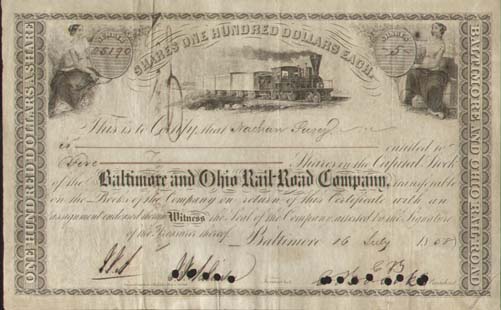 SHARES ONE HUNDRED DOLLARS EACH.
5
This is to Certify, that
is entitled to
Five Shares in the Capital Stock
of the Baltimore and Ohio Rail-Road Company, transferable
on the Books of the Company on return of this Certificate with an
assignment endorsed thereon Witness the Seal of the Company attested by the Signature
of the Treasurer thereof
Baltimore 16 July 18
ONE HUNDRED DOLLARS A SHARE
BALTIMORE AND OHIO RAIL-ROAD